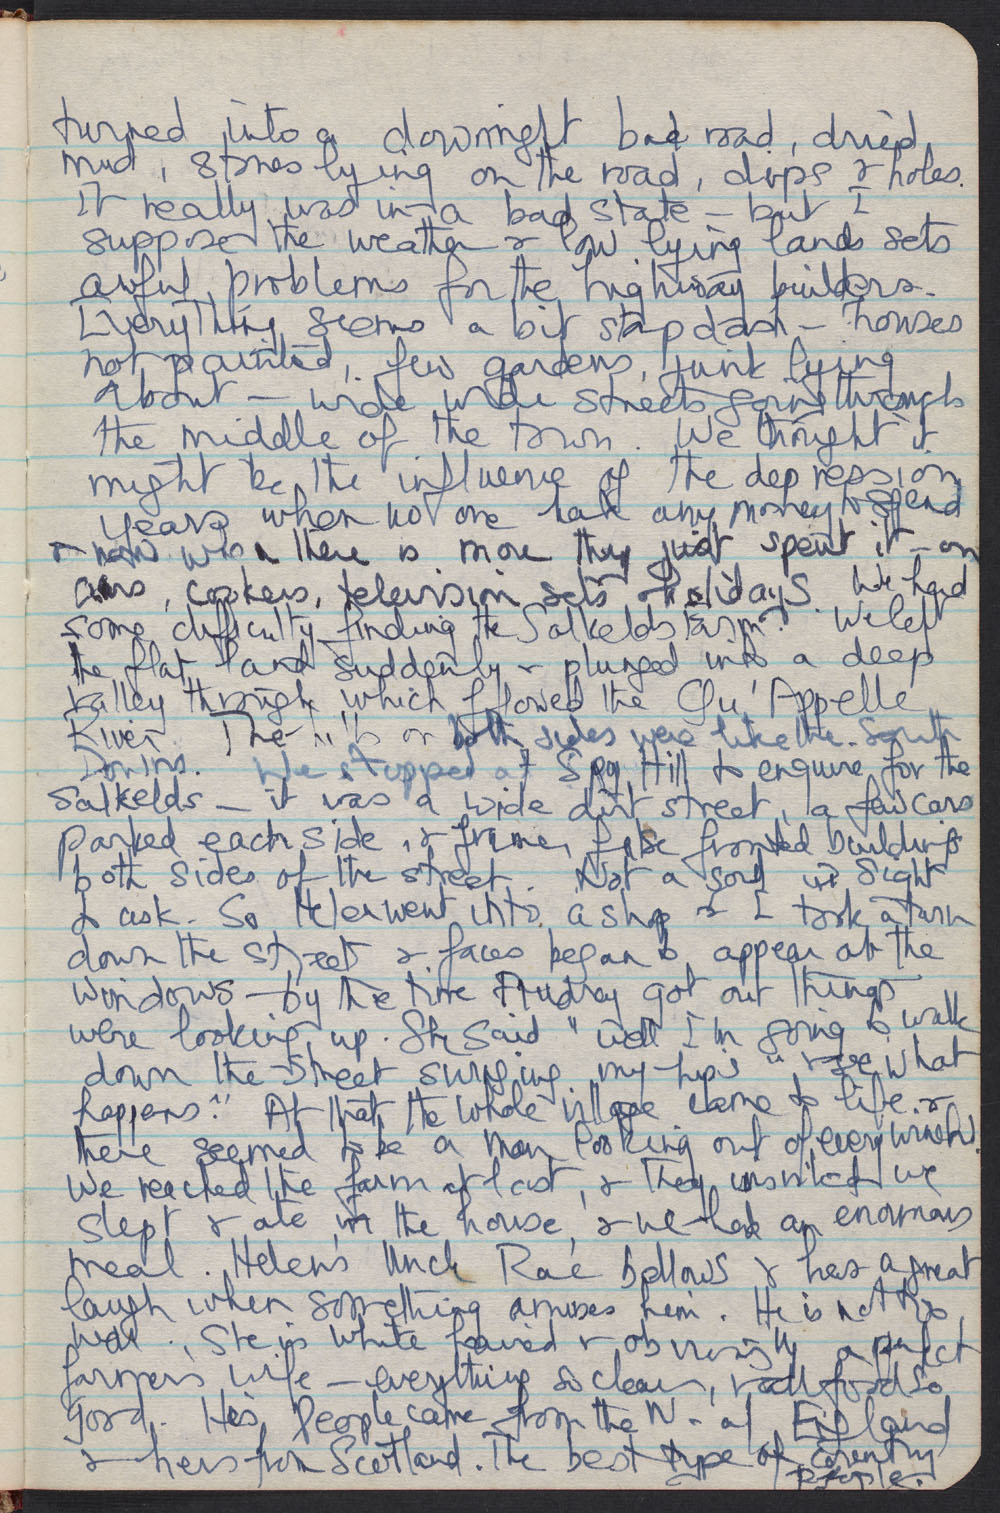 turned into a downright bad road, dried
mud, stones lying on the road, dips & holes.
It really was in a bad state - but I
suppose the weather & low lying lands sets
awful problems for the highway builders.
Everything seems a bit slapdash - houses
not painted, few gardens, junk lying
about - wide wide streets going through
the middle of the town. We thought it
might be the influence of the depression
years when no one had any money to spend
& now when there is more they just spent it - on
cars, cookers, television sets & holidays. We had
some difficulty finding the Salkelds farm. We left
the flat land suddenly & plunged into a deep
valley through which flowed the Qu'Appelle
River. The hills on both sides were like the South
Downs. We stopped at Spy Hill to enquire for the
Salkelds - it was a wide dirt street, a few cars
parked each side, & frame, false fronted buildings
both sides of the street. Not a soul in sight
to ask. So Helen went into a shop & I took a turn
down the street & faces began to appear at the
windows - by the time Audrey got out things
were looking up. She said "well I'm going to walk
down the street swinging my hips" & see what
happens." At that the whole village came to life &
there seemed to be a man looking out of every window.
We reached the farm at last, & they insisted we
slept & ate in the house, & we had an enormous
meal. Helen's Uncle Rae bellows & has a great
laugh when something amuses him. He is not too
well. She is white haired & obviously a perfect
farmer's wife - everything so clean, & all food so
good. His people came from the N. of England
& hers from Scotland. The best type of country
people.